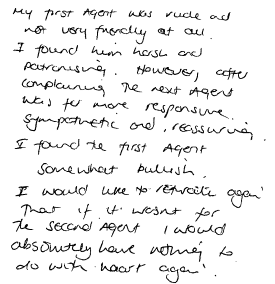 My first Agent was rude and
not very friendly at all.
I found him harsh and
patronising. However, after
complaining the next Agent
was far more responsive.
Sympathetic and, reassuring.
I found the first Agent
somewhat bullish.
I would like to reiterate again
that if it wasnt for
the second Agent I would
absolutely have nothing to
do with again.